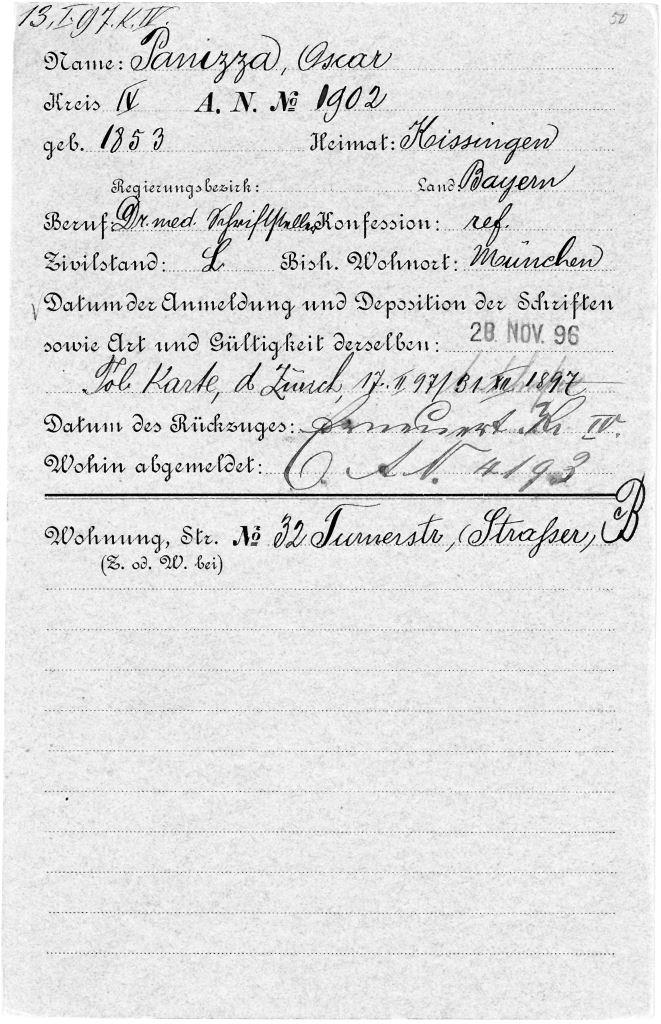 13.I.97.K.IV.
50
Name: Panizza, Oscar
Kreis IV A. N. № 1902
geb. 1853 Heimat: Kissingen
Regierungsbezirk: Land: Bayern
Beruf: Dr. med. Schriftsteller Konfession: ref.
Zivilstand: L Bish. Wohnort: München
Datum der Anmeldung und Deposition der Schriften
sowie Art und Gültigkeit derselben: 28. NOV. 96
Karte, d Zürich, 17. II 97/31 XII 1897
Datum des Rückzuges: Erneuert Kr IV.
Wohin abgemeldet: A N. 4193
Wohnung, Str. № 32 Turnerstr, (Strasser, B
(Z. od. W. bei)